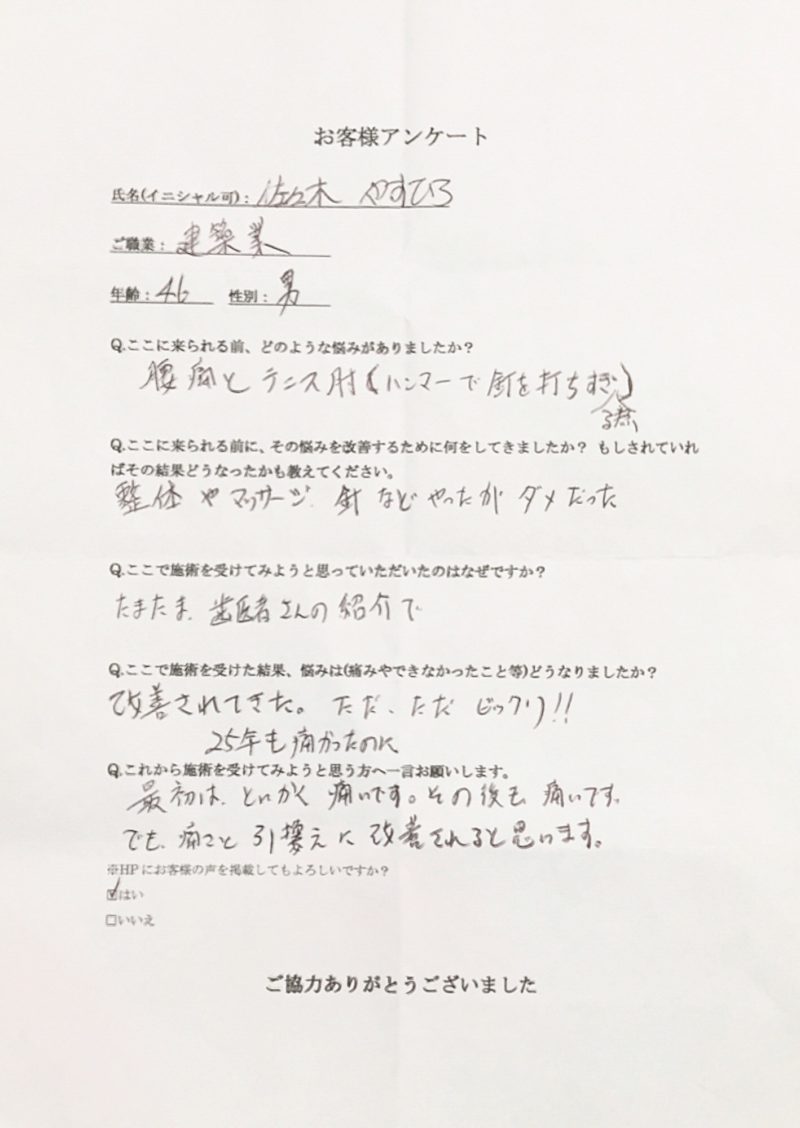 お客様アンケート
氏名(イニシャル可)：佐々木 やすひろ
ご職業：建築業
年齢：46 性別：男
Q.ここに来られる前、どのような悩みがありましたか？
腰痛とテニス肘(ハンマーで釘を打ちすぎ)
Q.ここに来られる前に、その悩みを改善するために何をしてきましたか？ もしされていれ
ばその結果どうなったかも教えてください。
整体やマッサージ、針などやったがダメだった
Q.ここで施術を受けてみようと思っていただいたのはなぜですか？
たまたま、歯医者さんの紹介で
Q.ここで施術を受けた結果、悩みは(痛みやできなかったこと等)どうなりましたか？
改善されてきた。ただ、ただビックリ!!
25年も痛かったのに
Q.これから施術を受けてみようと思う方へ一言お願いします。
最初は、とにかく痛いです。その後も痛いです。
でも、痛さと引換えに改善されると思います。
※HPにお客様の声を掲載してもよろしいですか？
☑はい
□いいえ
ご協力ありがとうございました